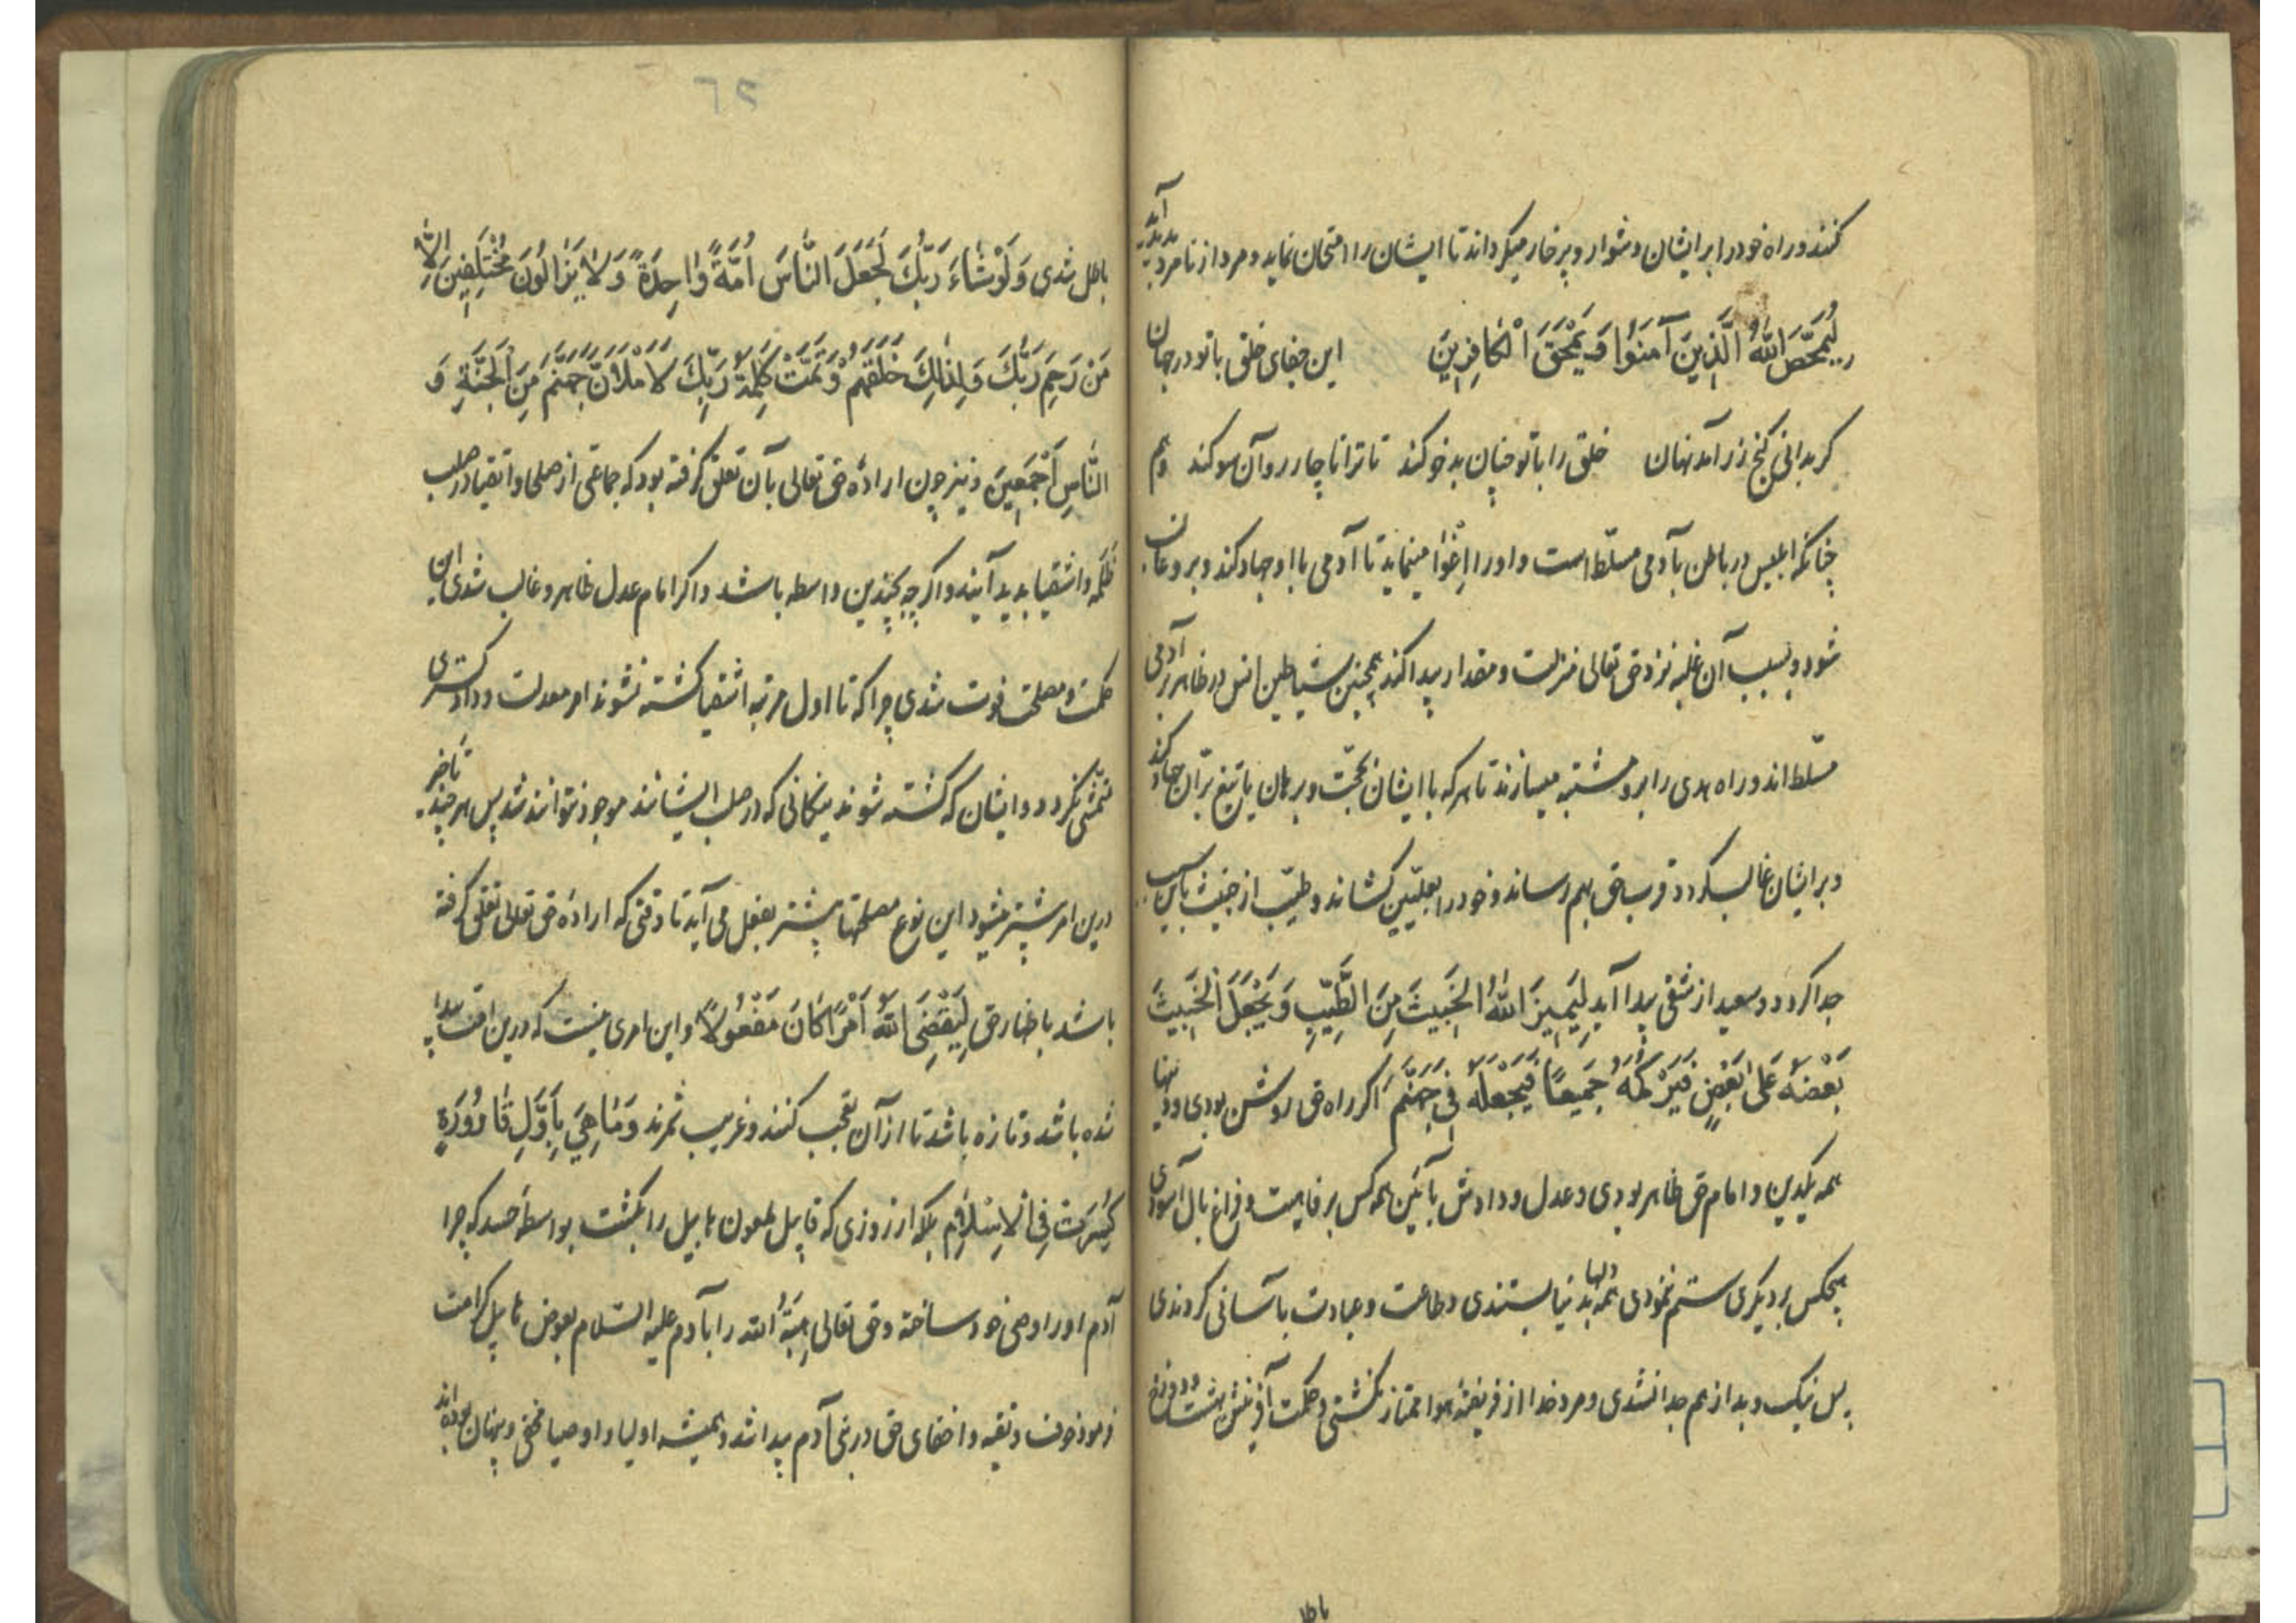 کنند و راه خود را بر ایشان دشوار و پرخار میکرداند تا ایشان را امتحان نماید و مرد از نامرد پدید آید
لِیُمَحِّصَ اللّٰهُ الَّذِینَ آمَنُوا وَ یَمْحَقَ الْکَافِرِینَ این جفای خلق با تو در جهان
کر بدانی کنج زر آمد نهان خلق را با تو چنان بدخو کند تا ترا ناچار رو آن سو کند و هم
چنانکه ابلیس در باطن بآدمی مسلّط است و او را اِغْوٰا مینماید تا آدمی با او جهاد کند و برو غالب
شود و بسبب آن غلبه نزد حق تعالی منزلت و مقدار پیدا کند همچنین شیاطین انس در ظاهر بر آدمی
مسلّط اند و راه هدی را برو مشتبه میسازند تا هر که با ایشان بحجّت و برهان یا تیغ برّان جهاد کند
و بر ایشان غالب کردد قرب حق بهم رساند و خود را بعلیّین کشاند و طیّب از خبیث باین سبب
جدا کردد و سعید از شقی پیدا آید لِیَمِیزَ اللّٰهُ الْخَبِیثَ مِنَ الطَّیِّبِ وَ یَجْعَلَ الْخَبِیثَ
بَعْضَهُ عَلیٰ بَعْضٍ فَیَرْکُمَهُ جَمِیعًا فَیَجْعَلَهُ فِی جَهَنَّمَ اکر راه حق روشن بودی و دینها
همه یکدین و امام حق ظاهر بودی و عدل و دادش بآئین همه کس برفاهیت و فراغ بال آسودی
هیچکس بر دیکری ستم ننمودی همه دلها بدنیا بستندی و طاعت و عبادت بآسانی کردندی
پس نیک و بد از هم جدا نشدی و مرد خدا از فریفتهٔ هوا ممتاز نکشتی و حکمت آفرینش بهشت و دوزخ
باطل
٦٢
باطل شدی وَ لَوْ شٰاءَ رَبُّکَ لَجَعَلَ النّٰاسَ اُمَّةً وٰاحِدَةً وَ لٰا یَزٰالُونَ مُخْتَلِفِینَ اِلّٰا
مَنْ رَحِمَ رَبُّکَ وَ لِذٰلِکَ خَلَقَهُمْ وَ تَمَّتْ کَلِمَةُ رَبِّکَ لَاَمْلَاَنَّ جَهَنَّمَ مِنَ الْجِنَّةِ وَ
النّٰاسِ اَجْمَعِینَ و نیز چون ارادهٔ حق تعالی بآن تعلق کرفته بود که جماعتی از صلحا و اتقیا در صلب
ظَلَمَه و اشقیا بدید آیند و اکر چه بچندین واسطه باشد و اکر امام عدل ظاهر و غالب شدی این
حکمت و مصلحت فوت شدی چرا که تا اول مرتبه اشقیا کشته نشوند امر معدلت و دادکستری
متمشی نکردد و اینان که کشته شوند نیکانی که در صلب ایشانند موجود نتوانند شد پس هر چند تأخیر
درین امر بیشتر میشود این نوع مصلحتها بیشتر بفعل می آید تا وقتی که ارادهٔ حق تعالی تعلق کرفته
باشد باظهار حق لِیَقْضِیَ اللّٰهُ اَمْرًا کَانَ مَفْعُولًا و این امری نیست که درین امّت پیدا
شده باشد و تازه باشد تا از آن تعجب کنند و غریب شمرند وَ مٰا هِیَ بِاَوَّلِ قٰارُورَةٍ
کُسِرَتْ فِی الْاِسْلٰامِ بلکه از روزی که قابیل ملعون هابیل را بکشت بواسطهٔ حسد که چرا
آدم او را وصی خود ساخته و حق تعالی هِبَةُ اللّٰه را بآدم علیه السّلام بعوض هابیل کرامت
فرمود خوف و تقیه و اخفای حق در بنی آدم پیدا شد و همیشه اولیا و اوصیا مخفی و پنهان بوده‌اند